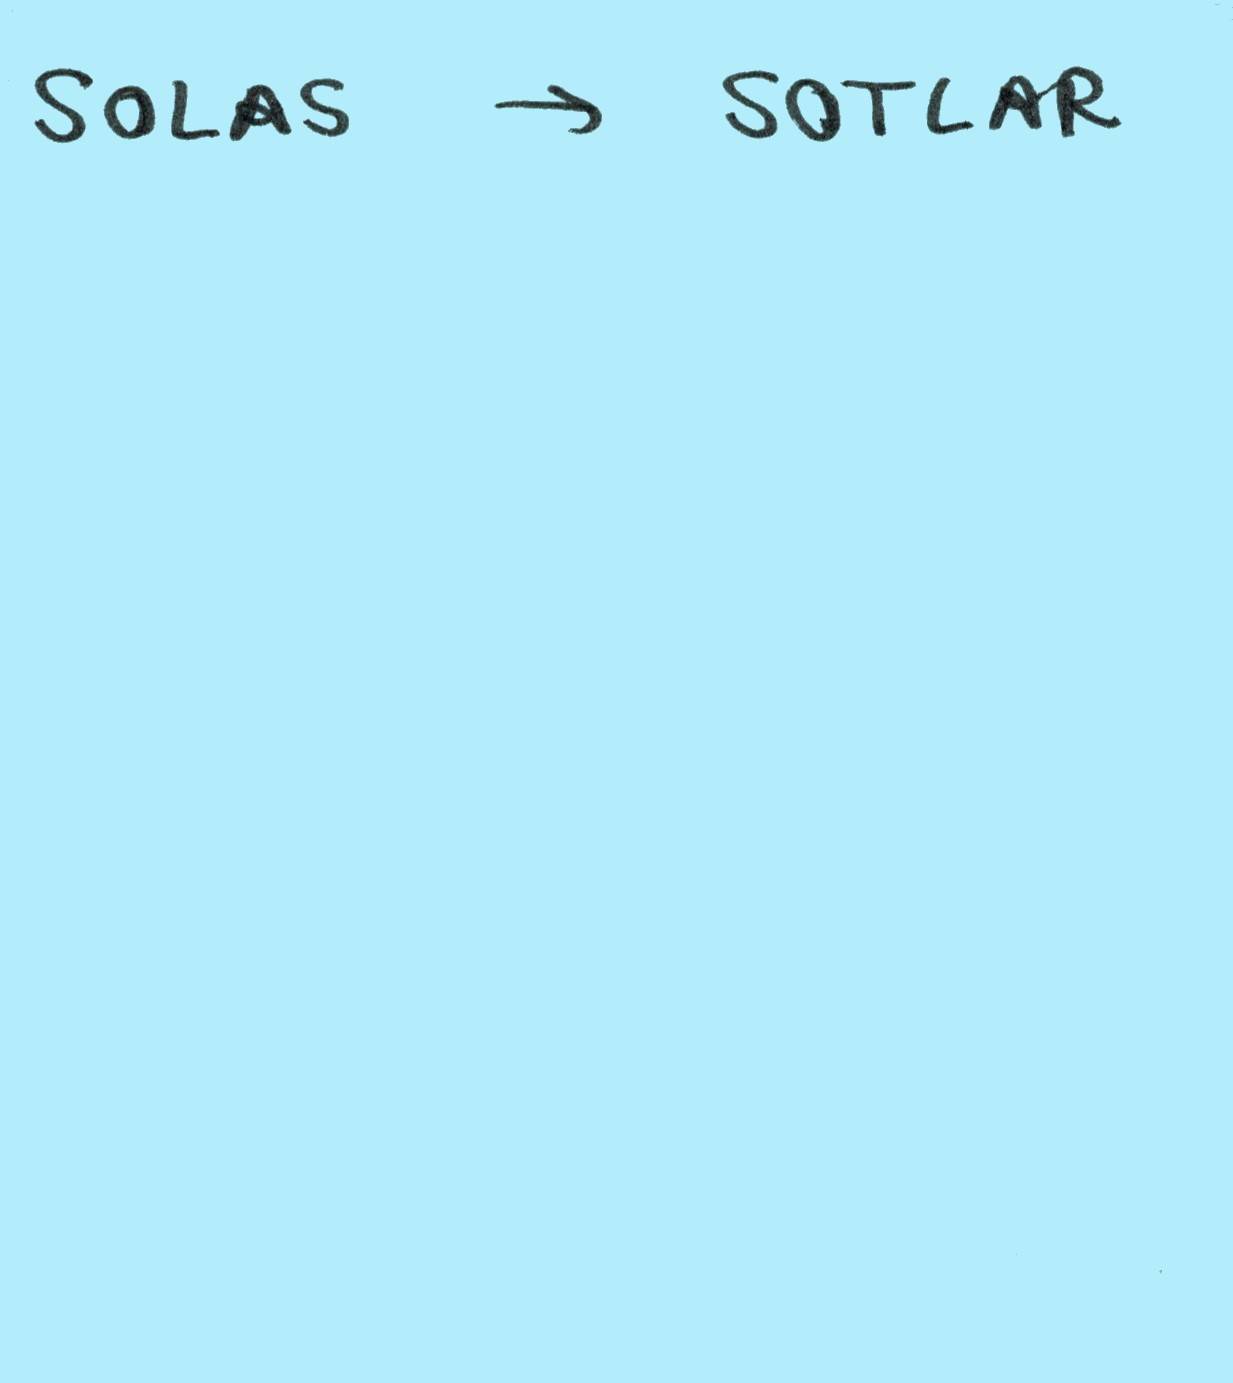 SOLAS → SOTLAR